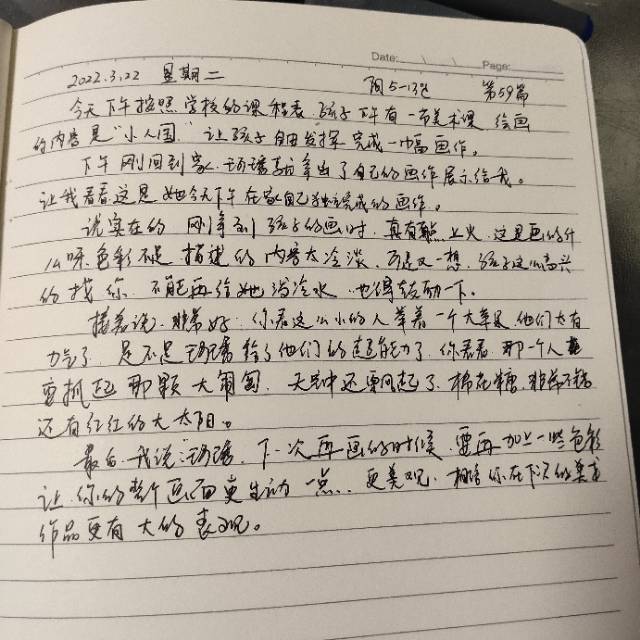 Date: Page:
2022.3.22 星期二 阴5-13℃ 第59篇
今天下午按照学校的课程表,孩子下午有一节美术课,绘画
的内容是"小人国",让孩子自由发挥完成一幅画作。
下午刚回到家,拿出了自己的画作展示给我。
让我看看这是她今天下午在家自己独立完成的画作。
说实在的 刚拿到孩子的画时,真有点上火,这是画的什
么呀,色彩不是 描述的内容太冷淡,可是又一想,孩子这么高兴
的找你 不能再给她泼冷水,也得鼓励一下。
接着说:非常好,你看这么小的人举着一个大苹果,他们太有
力气了,是不是给了他们的超能力了,你看看,那一个人
要抓起那颗大葡萄,天空中还要飘起了棉花糖,非常不错
还有红红的大太阳。
最后,我说:下一次再画的时候,要再加上一些色彩
让你的整个画面更生动一点,更美观,相信你在下次的美术
作品更有大的表现。